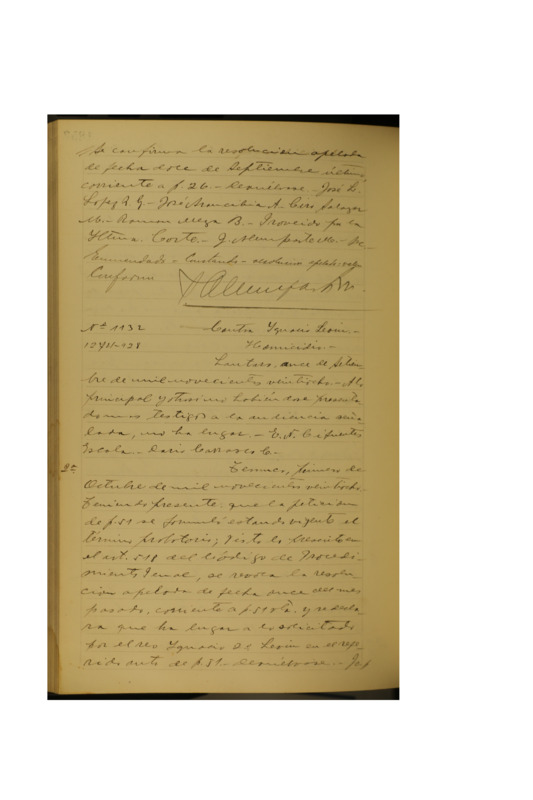 Se confirma la resolucion apelada
de fecha doce de Septiembre último
corriente a f. 26.- Devuélvase.- José D.
López G.- José Arancibia A.- Ciro Salazar
M.- Ramon Meza B.- Proveido por la
Iltma. Corte.-
Enmendado - Constando -
Conforme
Nº 1132 Contra Ignacio Leon.-
Homicidio.-
Lautaro, once de Setiem-
bre de mil novecientos veintiocho.- A lo
principal y otrosí no habiéndose presenta-
do mas testigos a la audiencia seña-
lada, no ha lugar.- E. A. Cifuentes
Escala.- Dario Carrasco C.-
2ª Temuco, primero de
Octubre de mil novecientos veintiocho.
Teniendo presente: que la peticion
de f. 51 se formuló estando vigente el
término probatorio; visto lo prescrito en
el art. 518 del Código de Procedi-
miento Penal, se revoca la resolu-
cion apelada de fecha once del mes
pasado, corriente a f. 51 vta. y se decla-
ra que ha lugar a lo solicitado
por el reo Ignacio 2º Leon en el refe-
rido escrito de f. 51.- Devuélvase.-